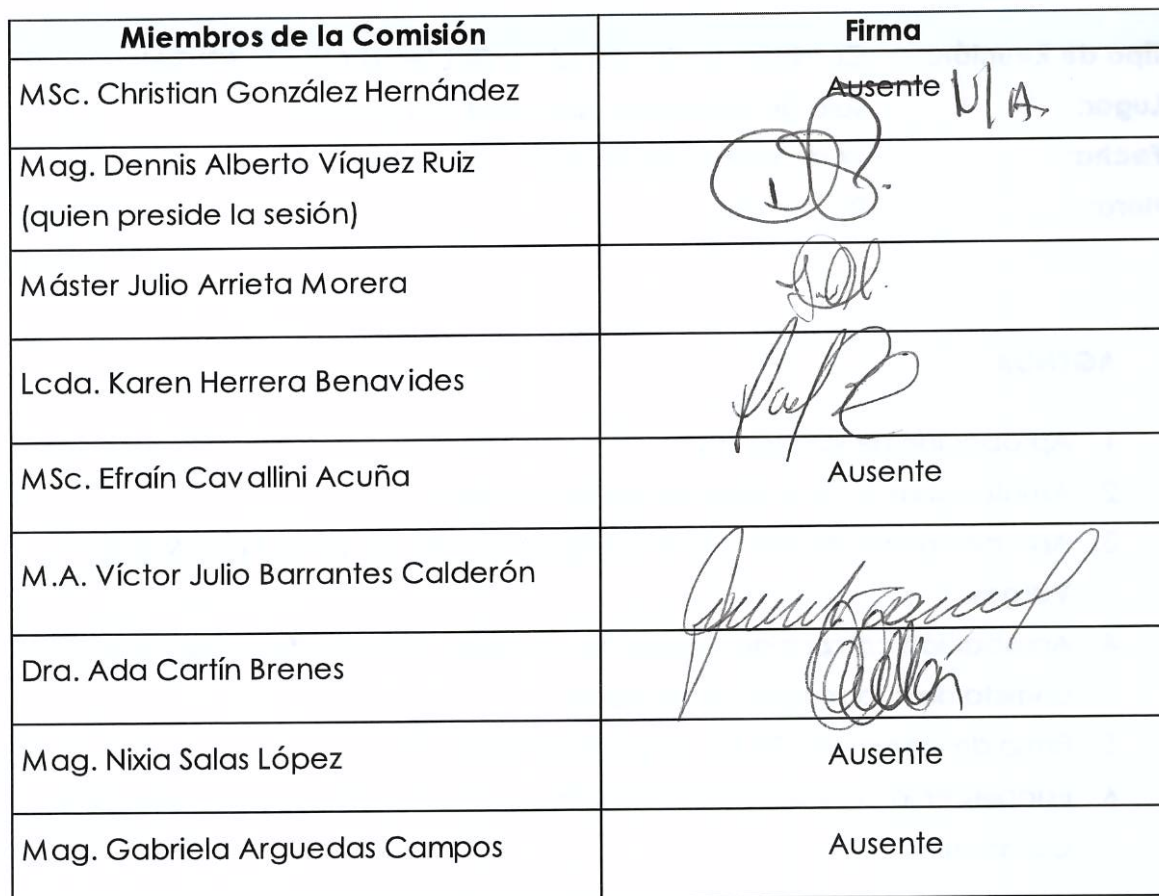 Miembros de la Comisión
Firma
MSc. Christian González Hernández
Ausente N/A.
Mag. Dennis Alberto Víquez Ruiz
(quien preside la sesión)
Máster Julio Arrieta Morera
Lcda. Karen Herrera Benavides
MSc. Efraín Cavallini Acuña
Ausente
M.A. Víctor Julio Barrantes Calderón
Dra. Ada Cartín Brenes
Mag. Nixia Salas López
Ausente
Mag. Gabriela Arguedas Campos
Ausente